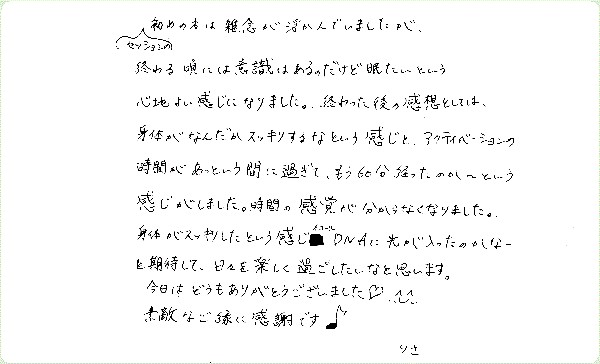 初めの方は雑念が浮かんでいましたが、
セッションの
終わる頃には意識はあるのだけど眠たいという
心地よい感じになりました。終わった後の感想としては、
身体がなんだかスッキリするなという感じと、アクティベーションの
時間があっという間に過ぎて、もう60分経ったのか〜という
感じがしました。時間の感覚が分からなくなりました。
身体がスッキリしたという感じ イコール DNAに光が入ったのかなー
と期待して、日々を楽しく過ごしたいなと思います。
今日は どうもありがとうございました♡ ^^
素敵なご縁に感謝です♪
りさ